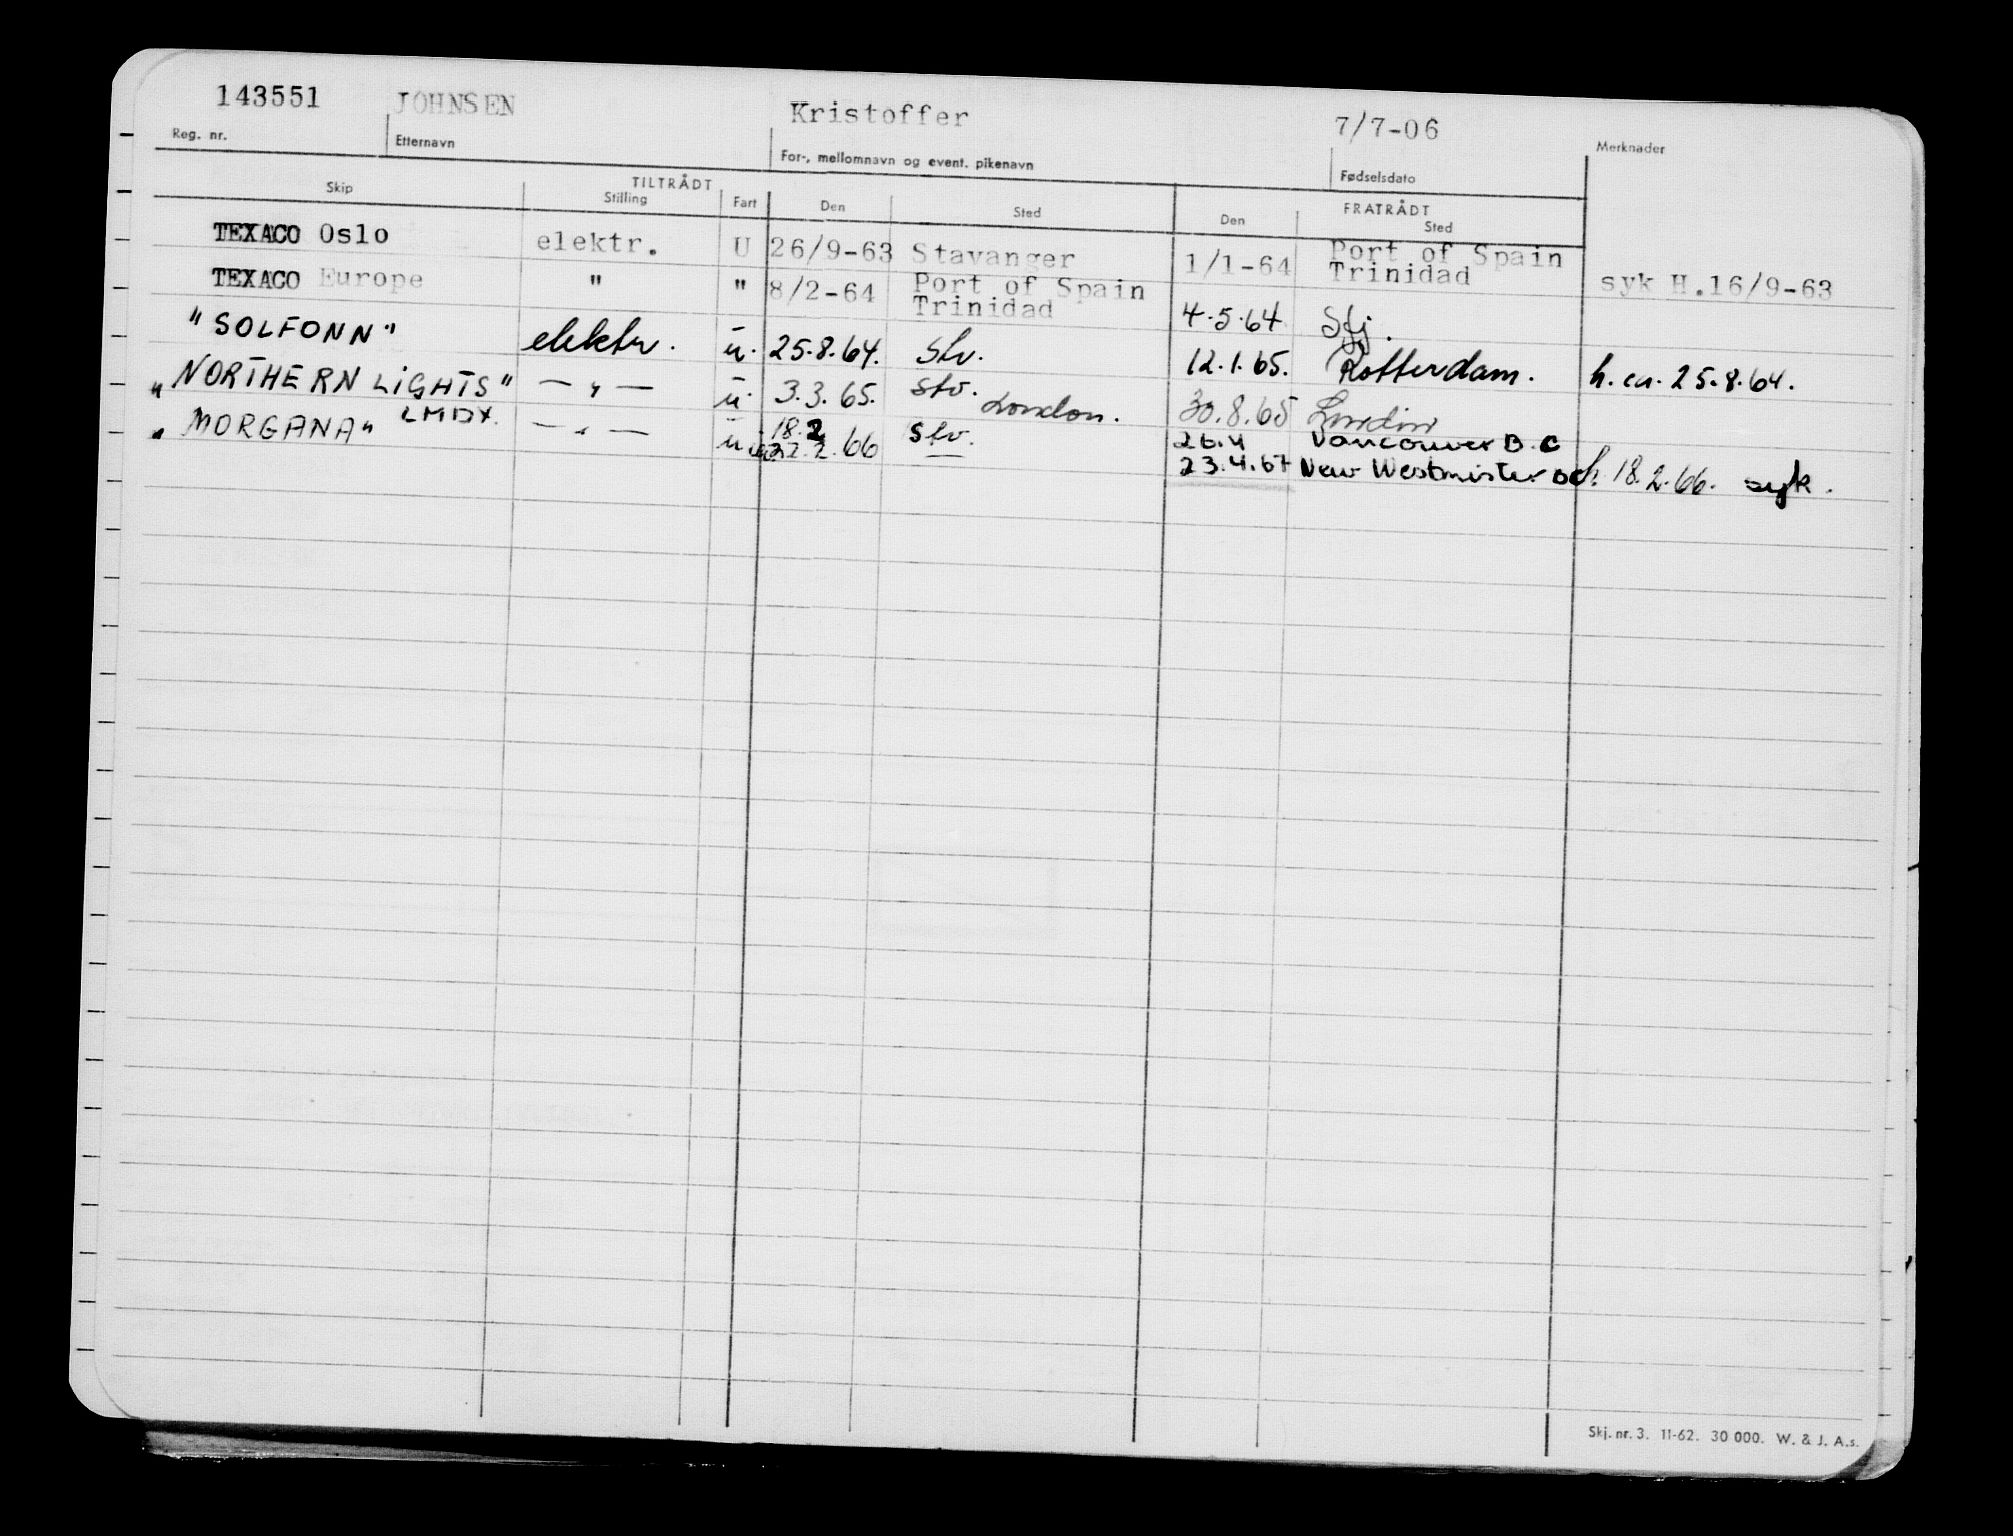 143551 JOHNSEN Kristoffer 7/7-06
Reg. nr. Etternavn For-, mellomnavn og event. pikenavn Fødselsdato Merknader
TILTRÅDT FRATRÅDT
Skip Stilling Fart Den Sted Den Sted
TEXACO Oslo elektr. U 26/9-63 Stavanger 1/1-64 Port of Spain
Trinidad
TEXACO Europe " " 8/2-64 Port of Spain syk H.16/9-63
Trinidad 4.5.64
"SOLFONN" elektr. u. 25.8.64. Stv. 12.1.65. Rotterdam. h. ca. 25.8.64.
"NORTHERN LIGHTS" — " — u. 3.3.65. Stv. London. 30.8.65 London
"MORGANA" LMDX. — " — u. 18.2 .66 Stv. 26.4 Vancouver B.C
23.4.67 New Westminster h. 18.2.66. syk.
Skj. nr. 3. 11-62. 30 000. W. & J. A.s.